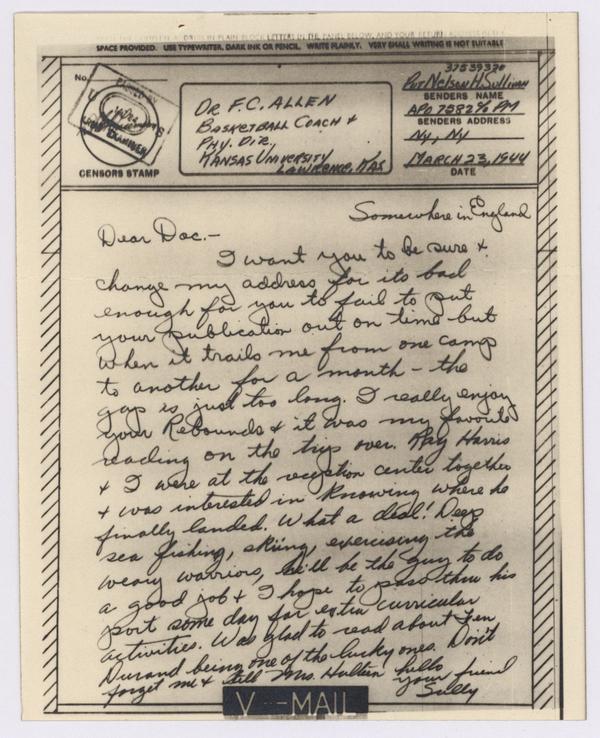 SPACE PROVIDED. USE TYPEWRITER, DARK INK OR PENCIL. WRITE PLAINLY. VERY SMALL WRITING IS NOT SUITABLE
No.
CENSORS STAMP
DR F.C. ALLEN
BASKETBALL COACH &
PHY. DIR,
KANSAS UNIVERSITY
LAWRENCE, KAS
37539320
PVT NELSON H. SULLIVAN
SENDERS NAME
APO 7582 % PM
SENDERS ADDRESS
NY, NY
MARCH 23, 1944
DATE
Somewhere in England
Dear Doc.-
I want you to be sure &
change my address for its bad
enough for you to fail to put
your publication out on time but
when it trails me from one camp
to another for a month - the
gap is just too long. I really enjoy
your Rebounds & it was my favorite
reading on the trip over. Ray Harris
& I were at the reception center together
& was interested in knowing where he
finally landed. What a deal! Deep
sea fishing, skiing, exercising the
weary warriors, he'll be the guy to do
a good job & I hope to pass thru his
port some day for extra curricular
activities. Was glad to read about Fen
Durand being one of the lucky ones. Don't
forget me & tell Mrs. Hulteen hello
your friend
Sully
V--MAIL